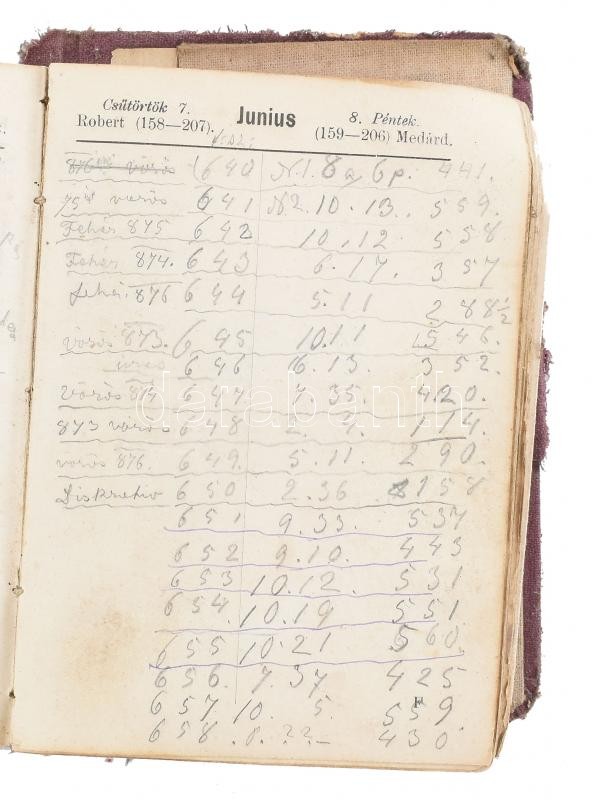 Csütörtök 7. Junius 8. Péntek.
Robert (158—207). (159—206) Medárd.
876 vörös 640 N.1. 8 a 6 p. 441.
75 vörös 641 N.2. 10. 13. 559.
Fehér 875 642 10. 12 558
Fehér 874. 643 6. 17. 357
fehér. 876 644 5. 11 288½
vörös 873. 645 10. 11 546.
646 6. 13. 352.
vörös 874 647 7. 35. 420.
873 vörös 648 2. 7. 114.
vörös 876. 649. 5. 11. 290.
Diskretiv 650 2. 36 158
651 9. 33. 537
652 9. 10. 443
653 10. 12. 531
654. 10. 19 551
655 10 21 560.
656. 7. 37 425
657 10. 5. 559.
658. 8. ??— 430.
darabanth